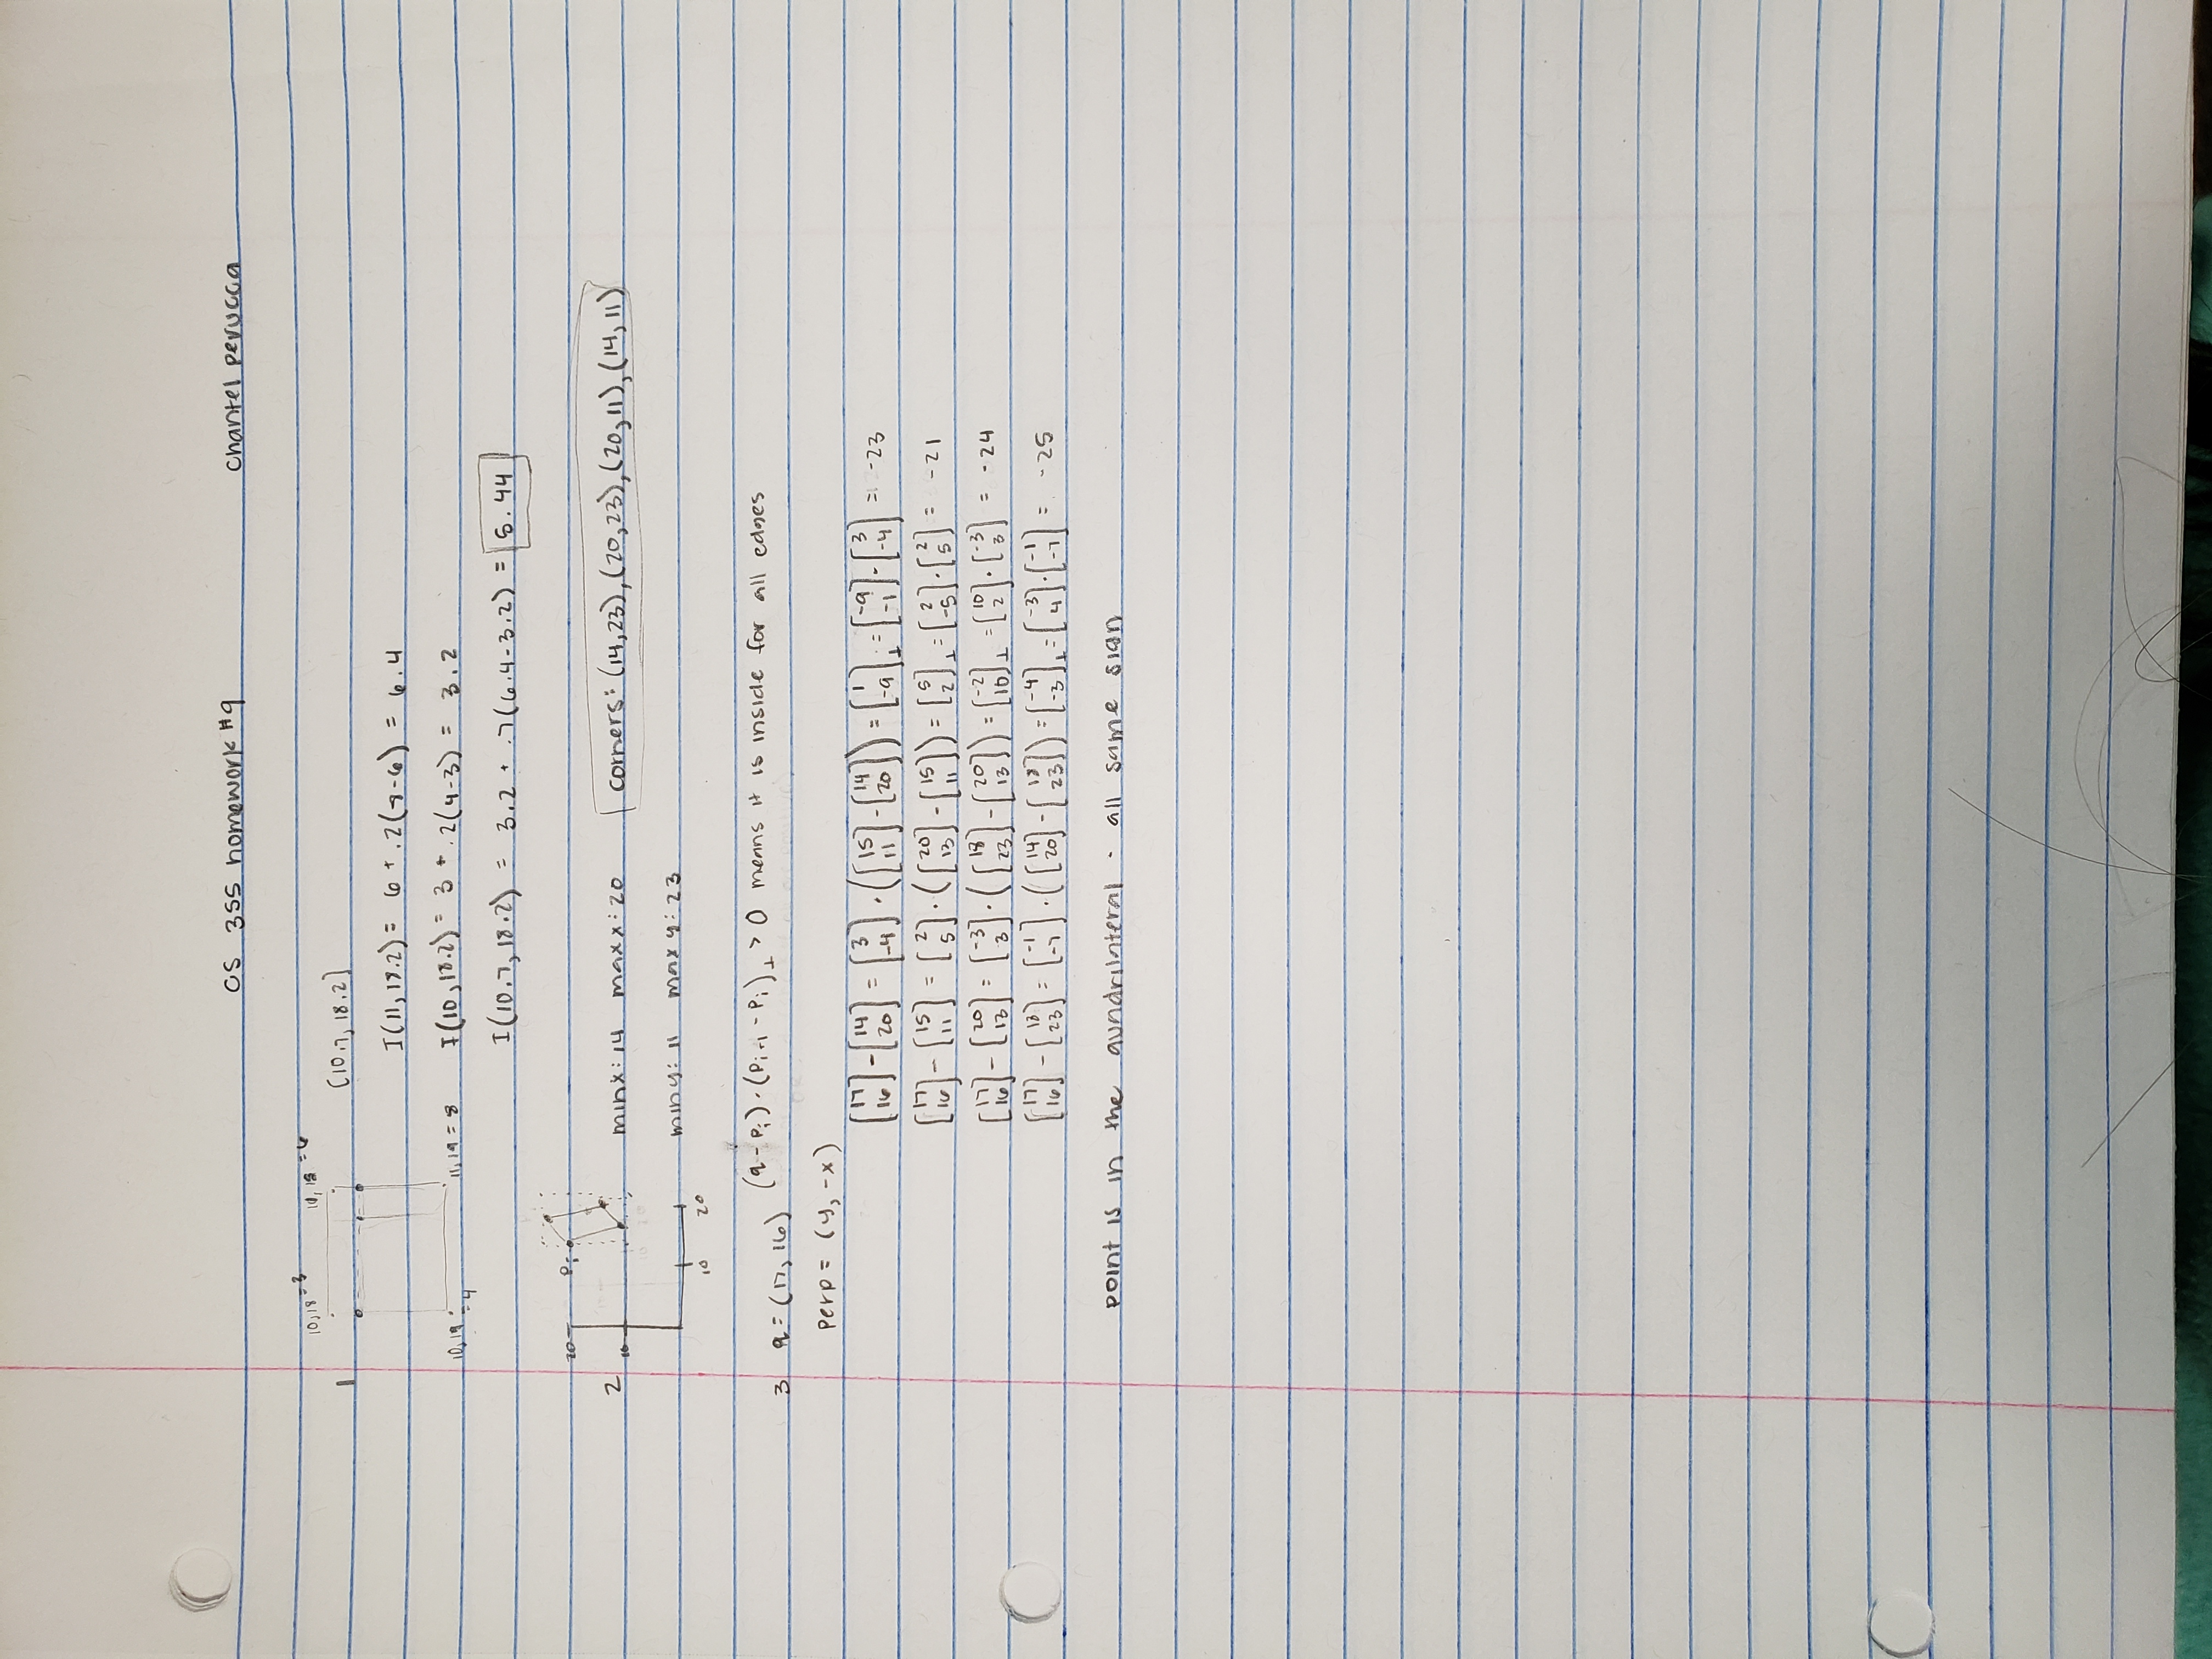 CS 355 homework #9 Chantel Perucca
10,18 = 3 10, 18 = 6
1 [10.7, 18.2]
I(11, 18.2) = 6 + .2(8-6) = 6.4
10,19 = 4 11,19 = 8 I(10, 18.2) = 3 + .2(4-3) = 3.2
I(10.7, 18.2) = 3.2 + .7(6.4-3.2) = 5.44
20 Pi
2 10 min x: 14 max x: 20 corners: (14,23), (20,23), (20,11), (14,11)
min y: 11 max y: 23
10 20
(q - Pi) · (Pi+1 - Pi)⊥ > 0 means it is inside for all edges
3 q = (17, 16)
perp = (y, -x)
[17 16] - [14 20] = [3 -4] · ([15 11] - [14 20]) = [1 -9]⊥ = [-9 -1] · [3 -4] = -23
[17 16] - [15 11] = [2 5] · ([20 13] - [15 11]) = [5 2]⊥ = [2 -5] · [2 5] = -21
[17 16] - [20 13] = [-3 3] · ([18 23] - [20 13]) = [-2 10]⊥ = [10 2] · [-3 3] = -24
[17 16] - [18 23] = [-1 -7] · ([14 20] - [18 23]) = [-4 -3]⊥ = [-3 4] · [-1 -7] = -25
point is in the quadrilateral - all same sign